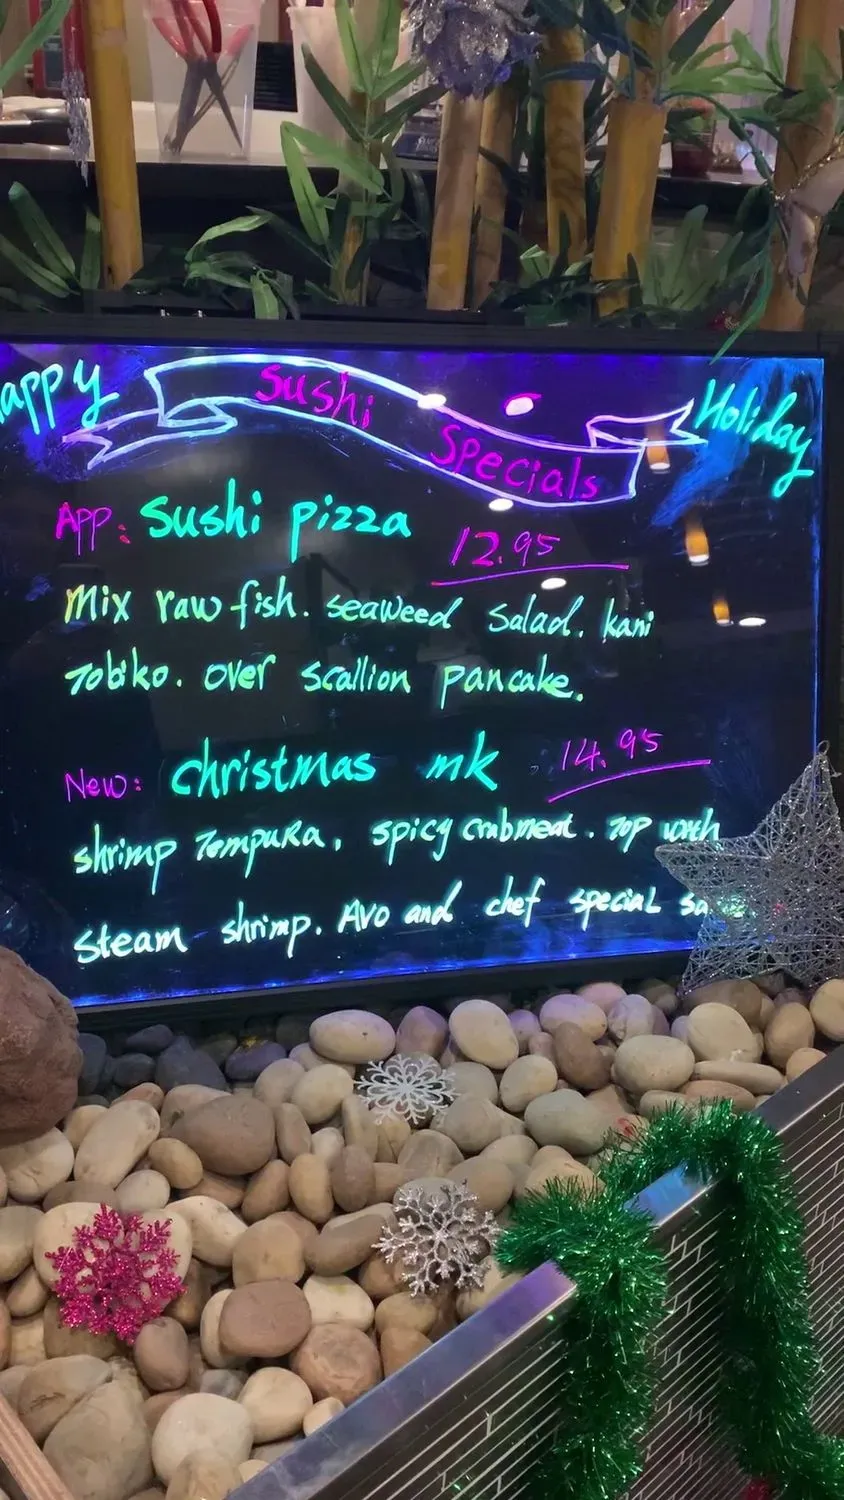 Happy Sushi Specials Holiday
App: Sushi pizza 12.95
Mix raw fish. seaweed salad. kani
Tobiko. over scallion pancake.
New: christmas mk 14.95
shrimp Tempura, spicy crabmeat. Top with
steam shrimp. Avo and chef special